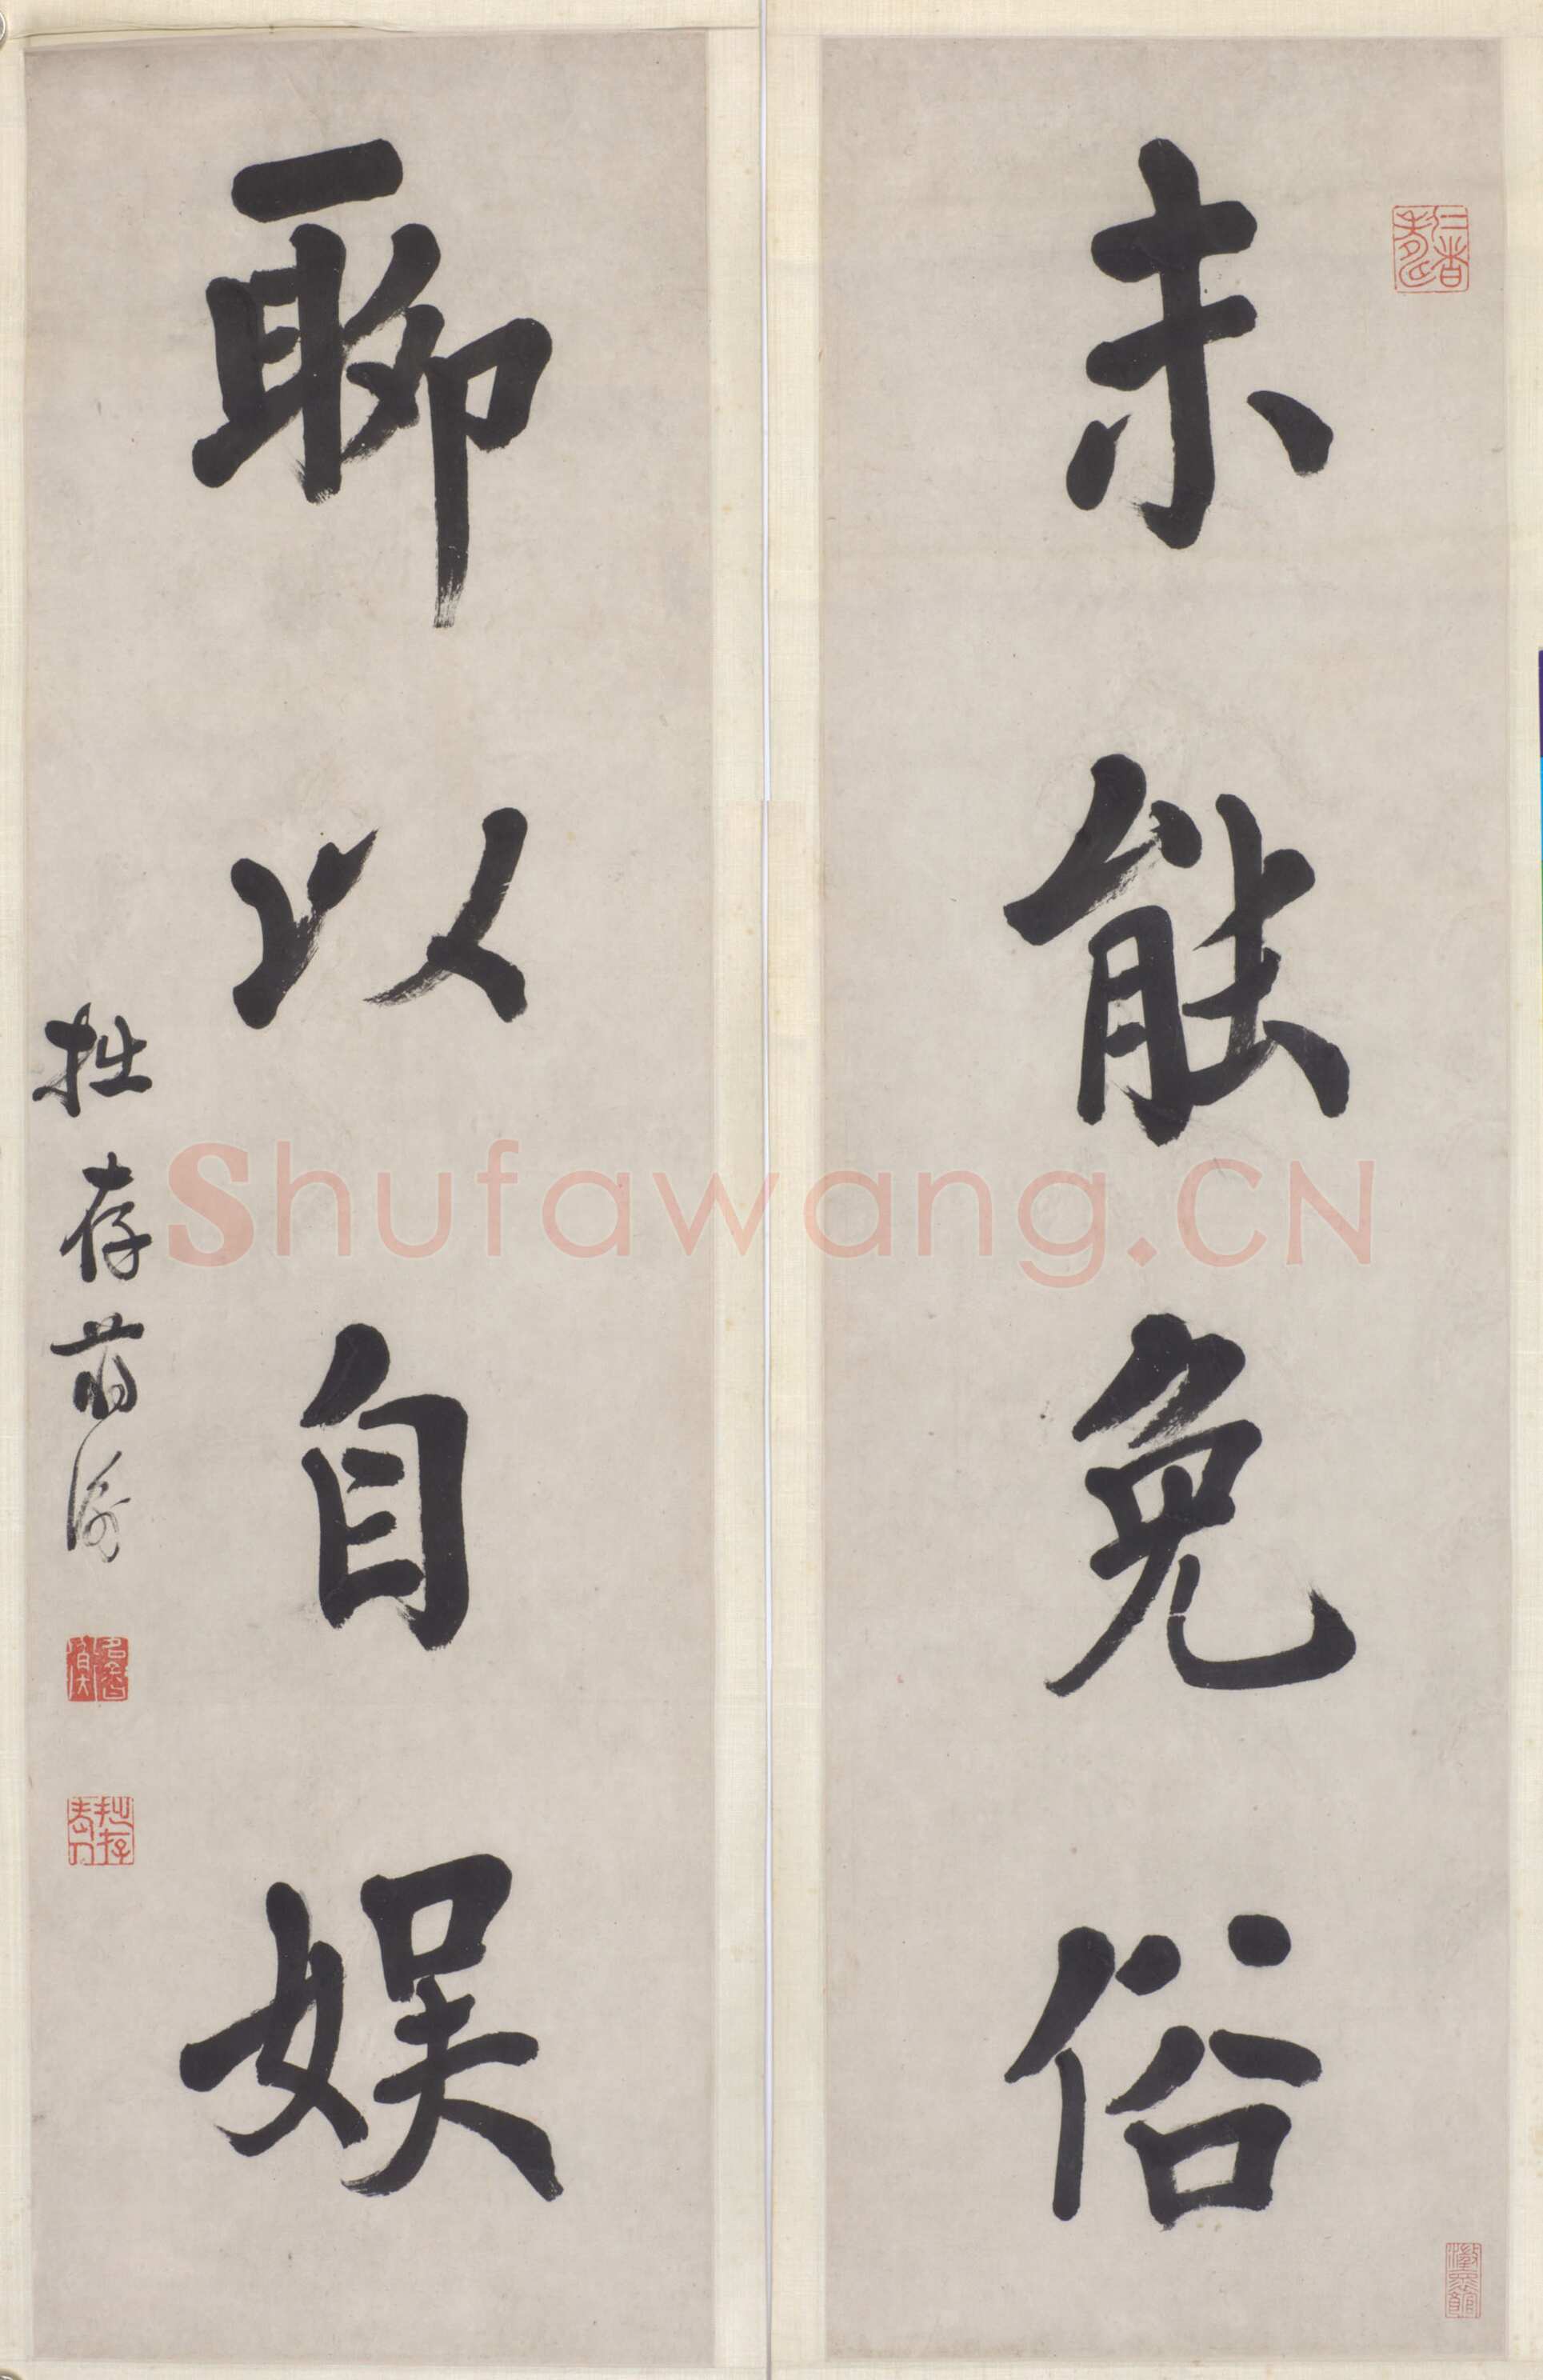 未能免俗
聊以自娱
拙存蒋衡
Shufawang.CN